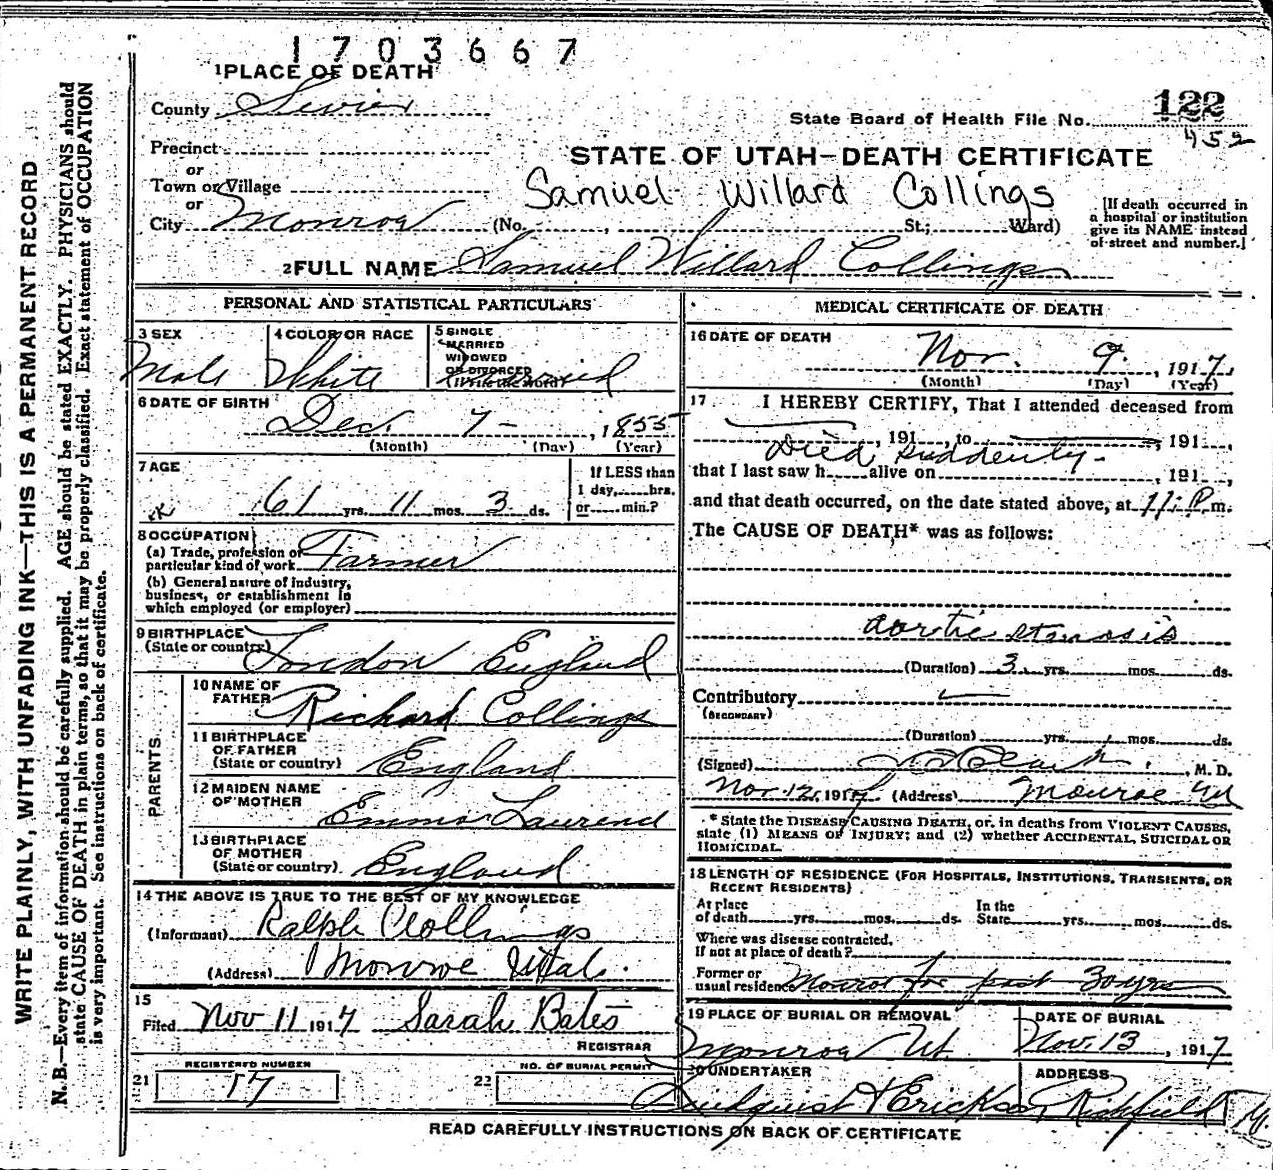 1703667
1 PLACE OF DEATH
County Sevier
State Board of Health File No. 122
452
Precinct
or
Town or Village
or
City Monroe (No. , St.; Ward)
STATE OF UTAH—DEATH CERTIFICATE
Samuel Willard Collings
[If death occurred in
a hospital or institution
give its NAME instead
of street and number.]
2 FULL NAME Samuel Willard Collings
PERSONAL AND STATISTICAL PARTICULARS
3 SEX
Male
4 COLOR OR RACE
White
5 SINGLE
MARRIED
WIDOWED
OR DIVORCED
(Write the word)
Married
6 DATE OF BIRTH
Dec. 7 - , 1855
(Month) (Day) (Year)
7 AGE
61 yrs. 11 mos. 3 ds.
If LESS than
1 day, hrs.
or min.?
8 OCCUPATION
(a) Trade, profession or
particular kind of work Farmer
(b) General nature of industry,
business, or establishment in
which employed (or employer)
9 BIRTHPLACE
(State or country) London England
PARENTS
10 NAME OF
FATHER Richard Collings
11 BIRTHPLACE
OF FATHER
(State or country) England
12 MAIDEN NAME
OF MOTHER Emma Laurend
13 BIRTHPLACE
OF MOTHER
(State or country) England
14 THE ABOVE IS TRUE TO THE BEST OF MY KNOWLEDGE
(Informant) Ralph Collings
(Address) Monroe Utah.
15
Filed Nov 11 1917 Sarah Bates
REGISTRAR
REGISTERED NUMBER
21 17
NO. OF BURIAL PERMIT
22
MEDICAL CERTIFICATE OF DEATH
16 DATE OF DEATH
Nov. 9. , 1917,
(Month) (Day) (Year)
17 I HEREBY CERTIFY, That I attended deceased from
, 191 , to , 191 ,
Died suddenly -
that I last saw h alive on , 191 ,
and that death occurred, on the date stated above, at 11: P m.
The CAUSE OF DEATH* was as follows:
aortic stenosis
(Duration) 3 yrs. mos. ds.
Contributory
(SECONDARY)
(Duration) yrs. mos. ds.
(Signed) , M. D.
Nov 12, 1917 (Address) Monroe Ut
* State the DISEASE CAUSING DEATH, or, in deaths from VIOLENT CAUSES,
state (1) MEANS OF INJURY; and (2) whether ACCIDENTAL, SUICIDAL OR
HOMICIDAL.
18 LENGTH OF RESIDENCE (FOR HOSPITALS, INSTITUTIONS, TRANSIENTS, OR
RECENT RESIDENTS)
At place
of death yrs. mos. ds. In the
State yrs. mos. ds.
Where was disease contracted,
If not at place of death?
Former or
usual residence Monroe for past 30 yrs
19 PLACE OF BURIAL OR REMOVAL
Monroe Ut.
DATE OF BURIAL
Nov. 13 , 1917
20 UNDERTAKER
Lindquist & Erickson
ADDRESS
Richfield
READ CAREFULLY INSTRUCTIONS ON BACK OF CERTIFICATE
WRITE PLAINLY, WITH UNFADING INK—THIS IS A PERMANENT RECORD
N. B.—Every item of information should be carefully supplied. AGE should be stated EXACTLY. PHYSICIANS should
state CAUSE OF DEATH in plain terms, so that it may be properly classified. Exact statement of OCCUPATION
is very important. See instructions on back of certificate.